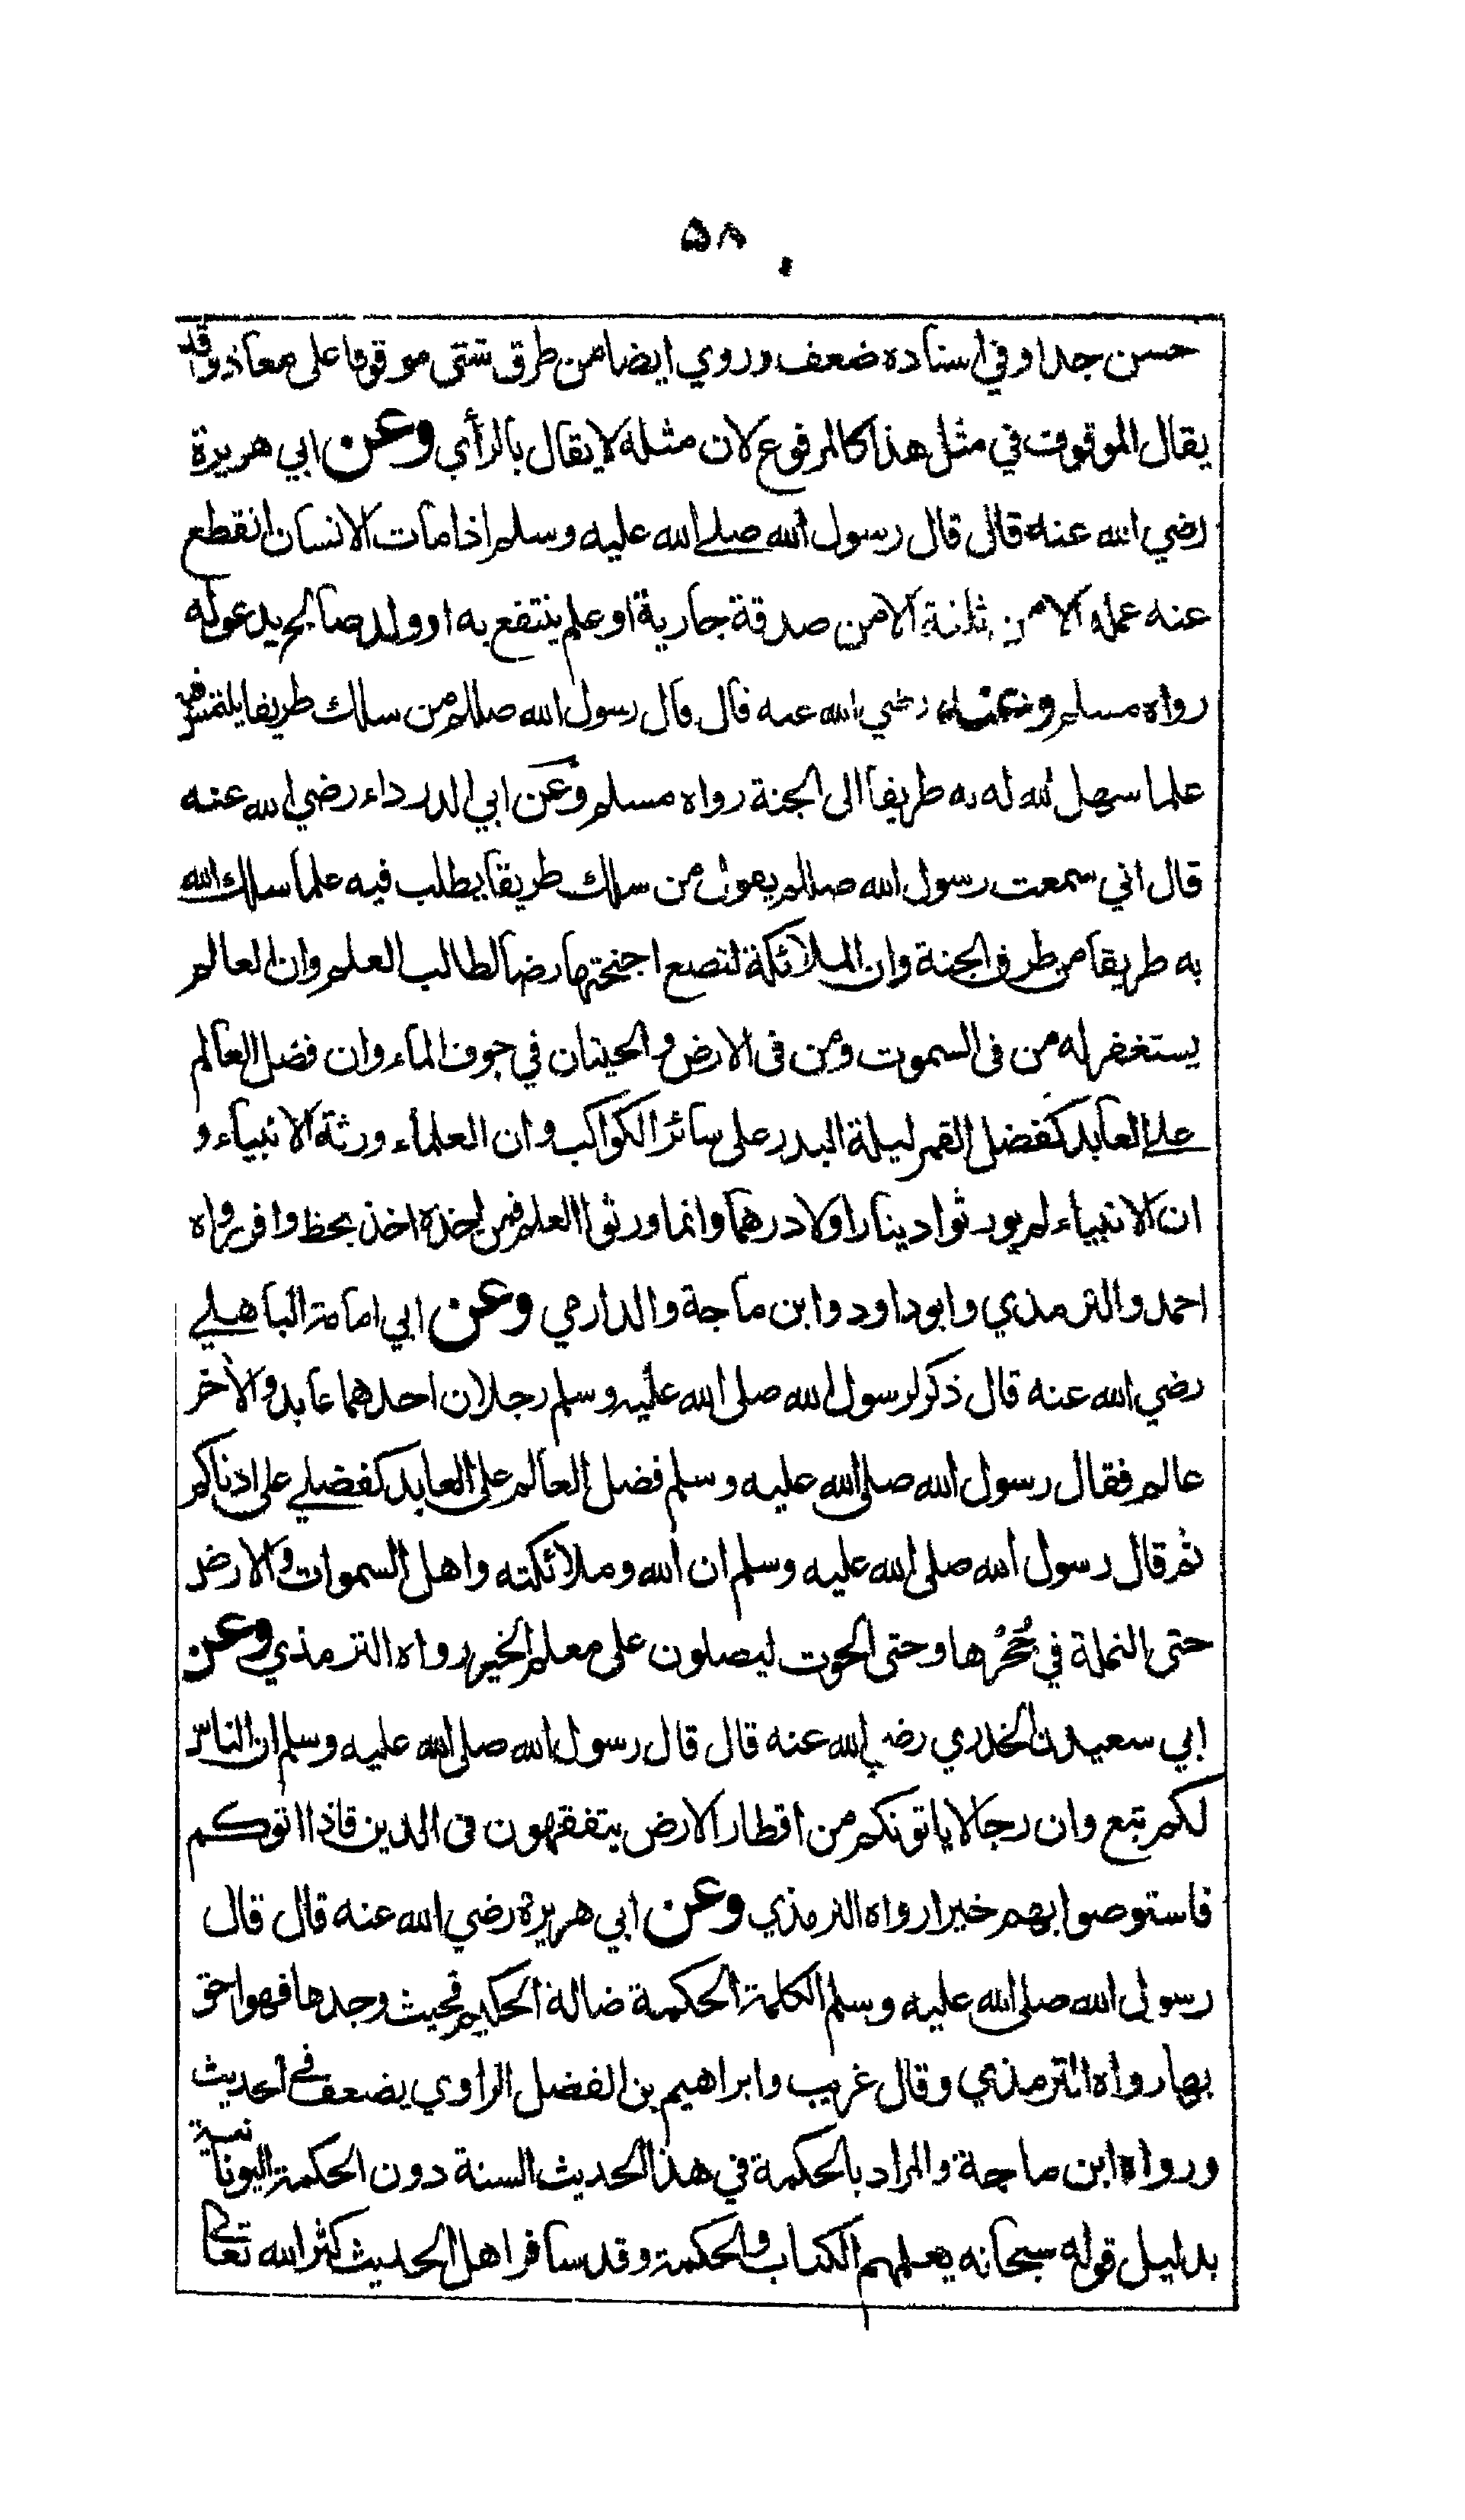 ٥٨
حسن جدا وفي اسناده ضعف وروي ايضا من طرق شتى موقوفا على معاذ وقد
يقال الموقوف في مثل هذا كالمرفوع لان مثله لا يقال بالرأي وعن ابي هريرة
رضي الله عنه قال قال رسول الله صلى الله عليه وسلم اذا مات الانسان انقطع
عنه عمله الا من ثلثة الا من صدقة جارية او علم ينتفع به او ولد صالح يدعو له
رواه مسلم وعنه رضي الله عنه قال قال رسول الله صللم من سلك طريقا يلتمس فيه
علما سهل الله له به طريقا الى الجنة رواه مسلم وعن ابي الدرداء رضي الله عنه
قال اني سمعت رسول الله صللم يقول من سلك طريقا يطلب فيه علما سلك الله
به طريقا من طرق الجنة وان الملائكة لتضع اجنحتها رضا لطالب العلم وان العالم
يستغفر له من فى السموت ومن فى الارض والحيتان في جوف الماء وان فضل العالم
على العابد كفضل القمر ليلة البدر على سائر الكواكب وان العلماء ورثة الانبياء و
ان الانبياء لم يورثوا دينارا ولا درهما وانما ورثوا العلم فمن اخذه اخذ بحظ وافر رواه
احمد والترمذي وابوداود وابن ماجة والدارمي وعن ابي امامة الباهلي
رضي الله عنه قال ذكر لرسول الله صلى الله عليه وسلم رجلان احدهما عابد والآخر
عالم فقال رسول الله صلى الله عليه وسلم فضل العالم على العابد كفضلي على ادناكم
ثم قال رسول الله صلى الله عليه وسلم ان الله وملائكته واهل السموات والارض
حتى النملة في جُحْرها وحتى الحوت ليصلون على معلم الخير رواه الترمذي وعن
ابي سعيدن الخدري رضي الله عنه قال قال رسول الله صلى الله عليه وسلم ان الناس
لكم تبع وان رجالا ياتونكم من اقطار الارض يتفقهون فى الدين فاذا اتوكم
فاستوصوا بهم خيرا رواه الترمذي وعن ابي هريرة رضي الله عنه قال قال
رسول الله صلى الله عليه وسلم الكلمة الحكمة ضالة الحكيم فحيث وجدها فهو احق
بها رواه الترمذي وقال غريب وابراهيم بن الفضل الراوي يضعف في الحديث
ورواه ابن ماجة والمراد بالحكمة في هذا الحديث السنة دون الحكمة اليونانية
بدليل قوله سبحانه يعلمهم الكتاب والحكمة وقد سافر اهل الحديث كثر الله تعالى